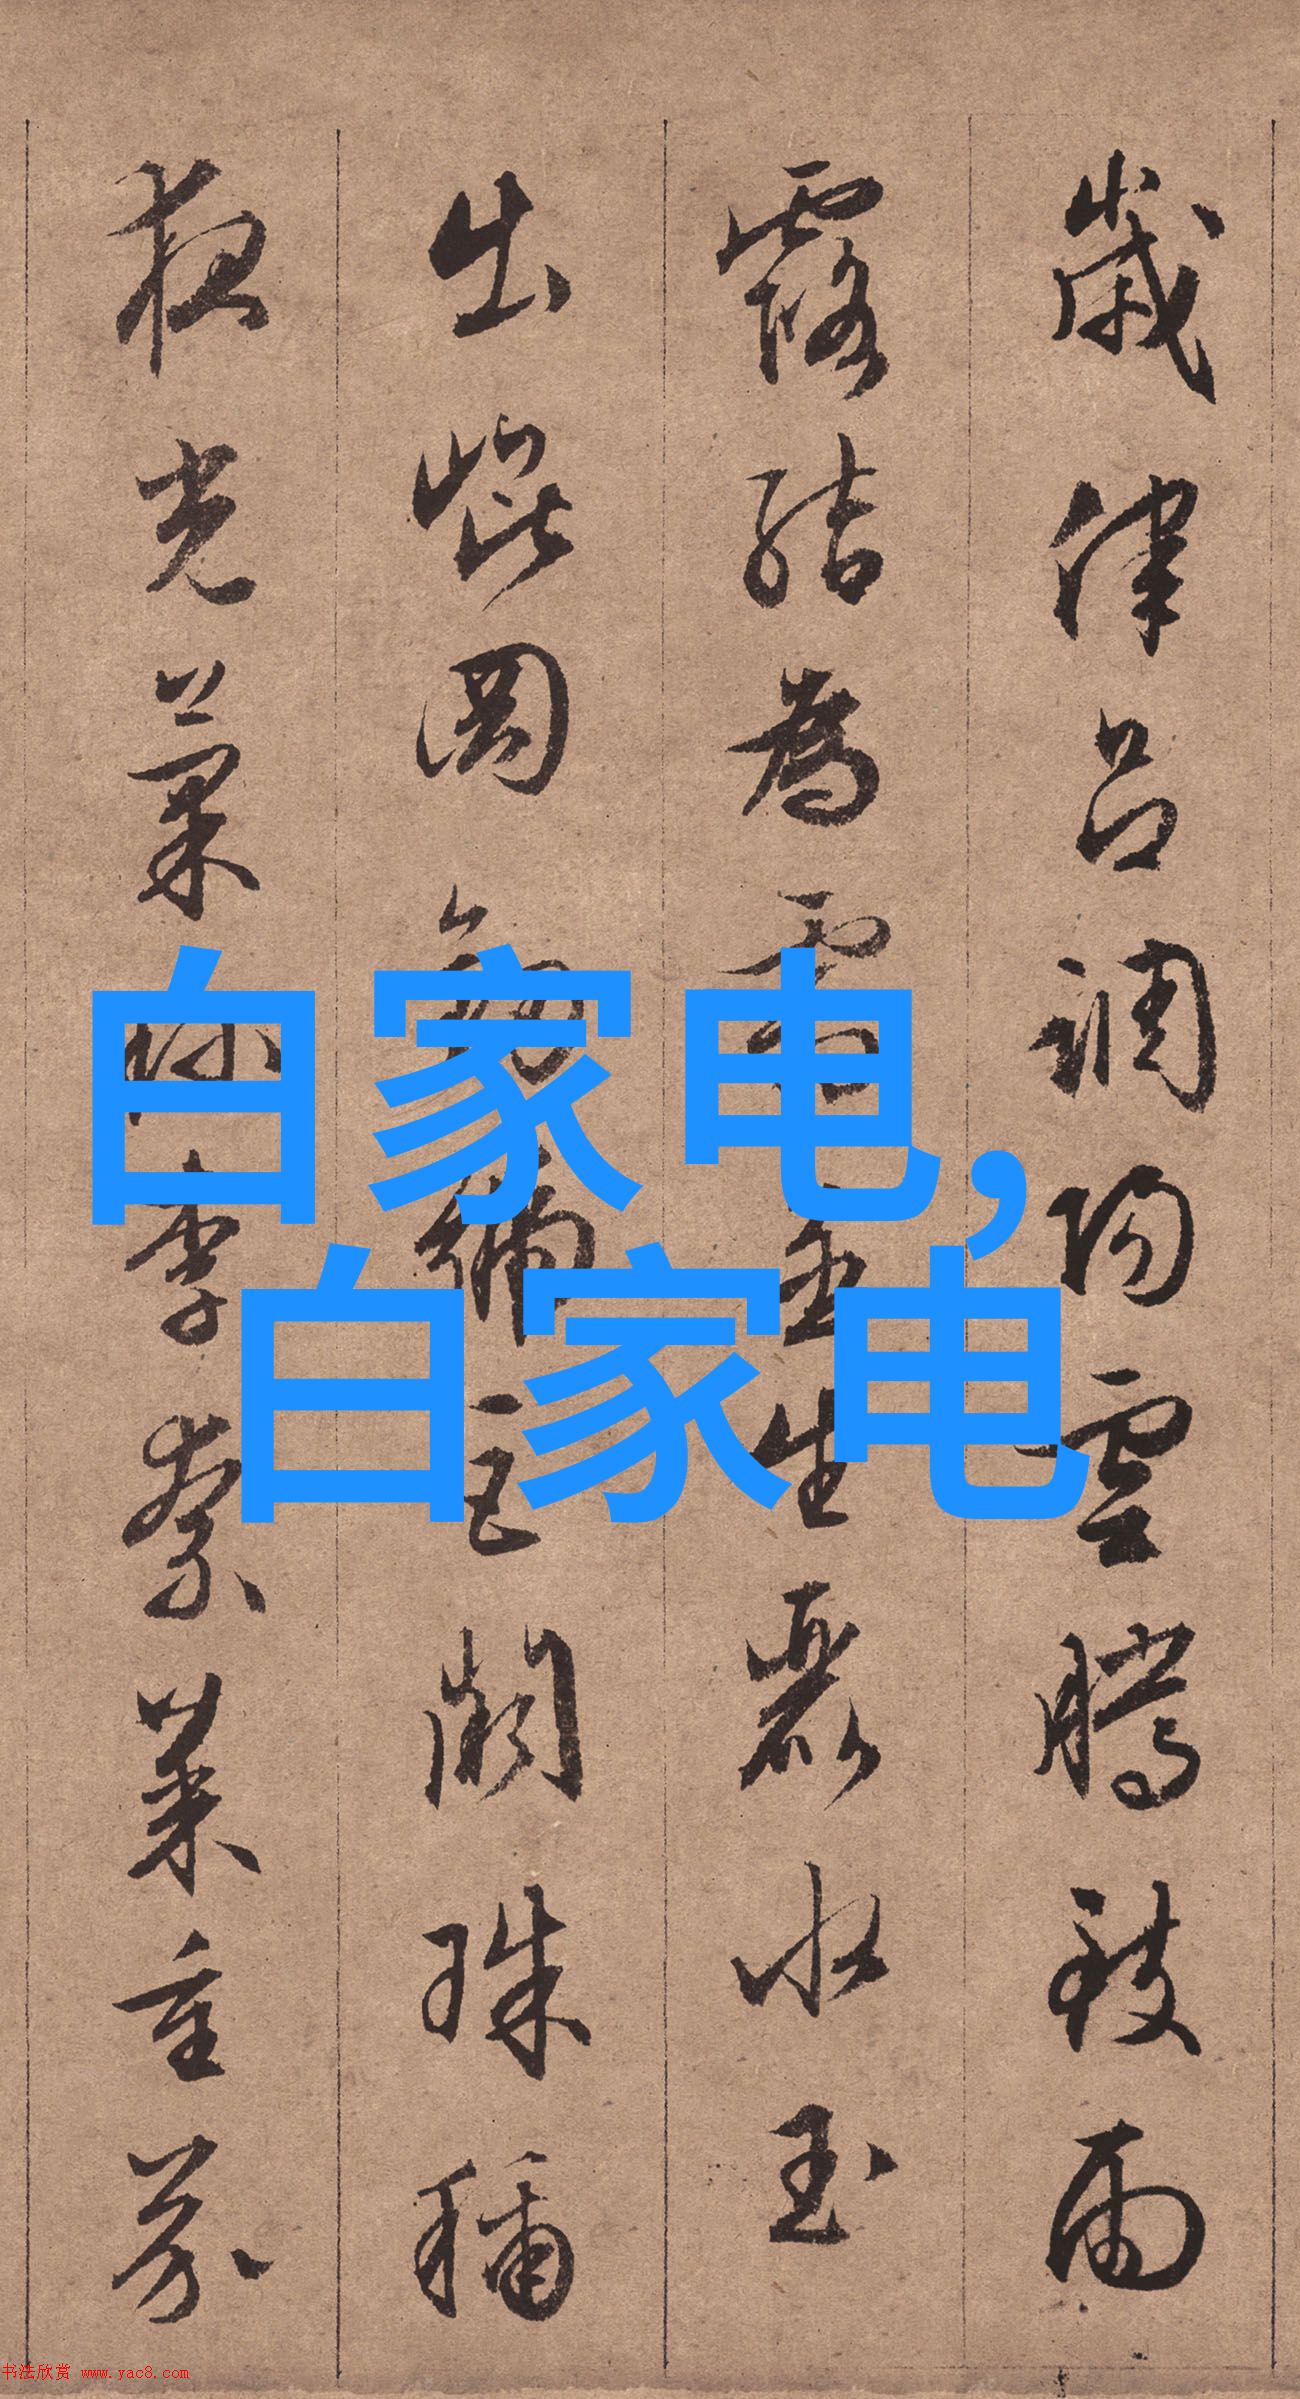 歲律呂調陽雲騰致雨
露結為霜金生麗水玉
出崐岡劍號巨闕珠稱
夜光菓珍李柰菜重芥
白家电,
白家电
书法欣赏 www.yac8.com